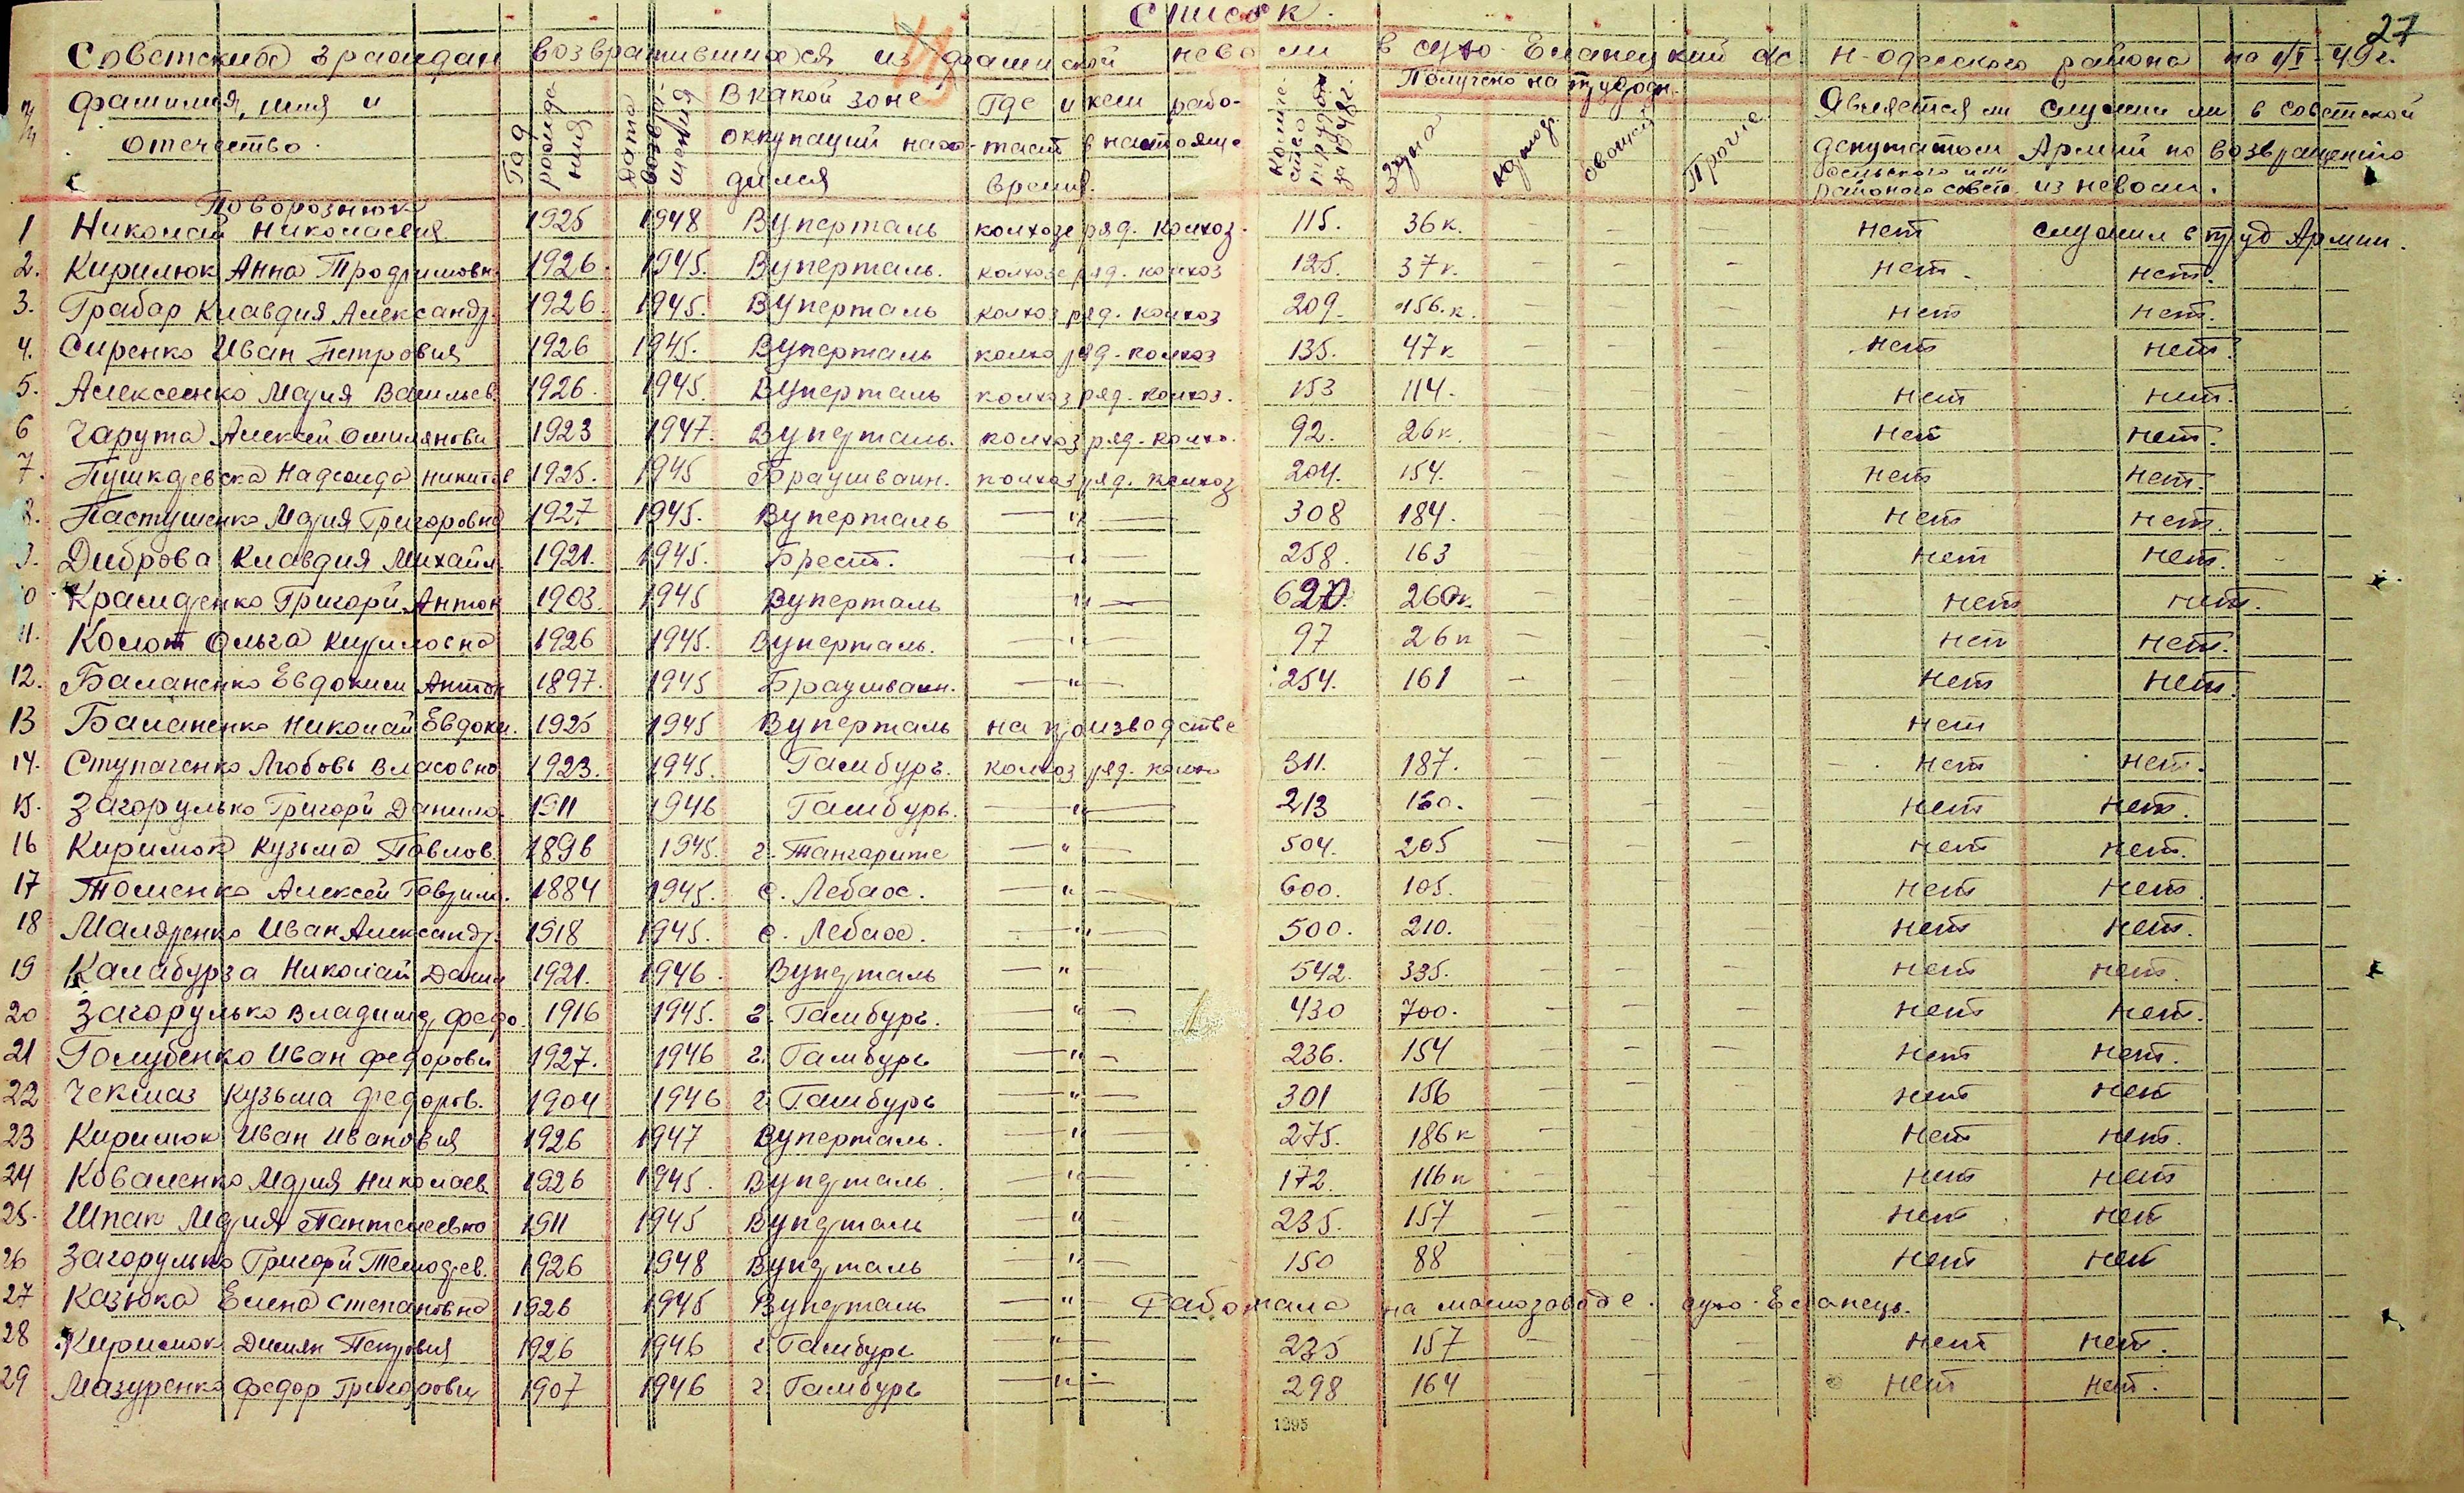 27
Список.
Советских граждан возвратившихся из фашиской неволи в сухо-Еланецкий с/с Н-Одесского района на 1/I-49г.
Фамилия, имя и отчество.
Год рождения
Дата возвращения
В какой зоне оккупации находился
Где и кем работает в настояще время.
Количество трудодн. за 1948г.
Получено на трудодн.
Зерна
овощей
Прочие
Является ли депутатом сельского или районого совета
Служил ли в советской Армии по возвращению из неволи.
1 Поворознюк Николай Николаевич 1925 1948 Вуперталь колхозе ряд. колхоз. 115. 36к. – – – нет служил в труд Армии.
2. Кирилюк Анна Трофимовн 1926. 1945. Вуперталь. колхозе ряд. колхоз 125. 37к. – – – нет. нет.
3. Грабар Клавдия Александр. 1926. 1945. Вуперталь колхоз ряд. колхоз 209. 156.к. – – – нет нет.
4. Сиренко Иван Петрович 1926 1945. Вуперталь колхо ряд. колхоз 135. 47к – – – нет нет.
5. Алексеенко Мария Васильев. 1926. 1945. Вуперталь колхоз ряд. колхоз. 153 114. – – – нет нет.
6 Чарута Алексей Омилянови 1923 1947. Вуперталь. колхоз ряд. колхо. 92. 26к. – – – нет нет.
7. Пушкаревска Надежда Никитов 1925. 1945 Браушваин. колхоз ряд. колхоз 204. 154. – – – нет нет.
8. Пастушенко Мария Григоровна 1927 1945. Вуперталь —"— 308 184. – – – нет нет.
9. Диброва Клавдия Михайл. 1921. 1945. Брест. —"— 258. 163 – – – нет нет.
10 Крамаренко Григорй Антон 1903. 1945 Вуперталь —"— 620. 260к. – – – нет нет.
11. Колот Ольга Кириловна 1926 1945. Вуперталь. —"— 97 26к – – – нет нет.
12. Баланенко Евдоким Антон 1897. 1945 Браушваин. —"— 254. 161 – – – нет нет.
13 Баланенко Николай Евдоки. 1925 1945 Вуперталь на производстве нет
14. Ступаченко Любовь Власовна 1923. 1945. Гамбург. колхоз ряд. колхо 311. 187. – – – нет нет.
15. Загорулько Григорй Данило. 1911 1946 Гамбург. —"— 213 150. – – – нет нет.
16 Кирилюк Кузьма Павлов 1896 1945. г. Тангарите —"— 504. 205 – – – нет нет.
17 Томенко Алексей Гаврил. 1884 1945. с. Лебаос. —"— 600. 105. – – – нет нет
18 Маляренко Иван Александр. 1918 1945. с. Лебаос. —"— 500. 210. – – – нет нет.
19 Калабурза Николай Дани 1921. 1946. Вуперталь —"— 542. 335. – – – нет нет.
20 Загорулько Владимир Федо. 1916 1945. г. Гамбург. —"— 430 700. – – – нет нет.
21 Голубенко Иван Федорови 1927. 1946 г. Гамбург —"— 236. 154 – – – нет нет.
22 Чекмаз Кузьма Федоров. 1904 1946 г. Гамбург —"— 301 156 – – – нет нет
23 Кирилюк Иван Иванович 1926 1947 Вуперталь. —"— 275. 186к – – – нет нет.
24 Коваленко Мария Николаев. 1926 1945. Вуперталь. —"— 172. 116к – – – нет нет
25. Шпак Мария Пантелеевно 1911 1945 Вуперталь —"— 235. 157 – – – нет нет
26 Загорулько Григорй 1926 1948 Вуперталь —"— 150 88 – – – нет нет
27 Казюка Елена Степановна 1926 1945 Вуперталь —"— Работала на маслозаводе. сухо-Еланець.
28 Кирилюк Демян Петрович 1926 1946 г. Гамбург —"— 235 157 – – – нет нет.
29 Мазуренко Федор Григорови 1907 1946 г. Гамбург —"— 298 164 – – – нет нет.
1295